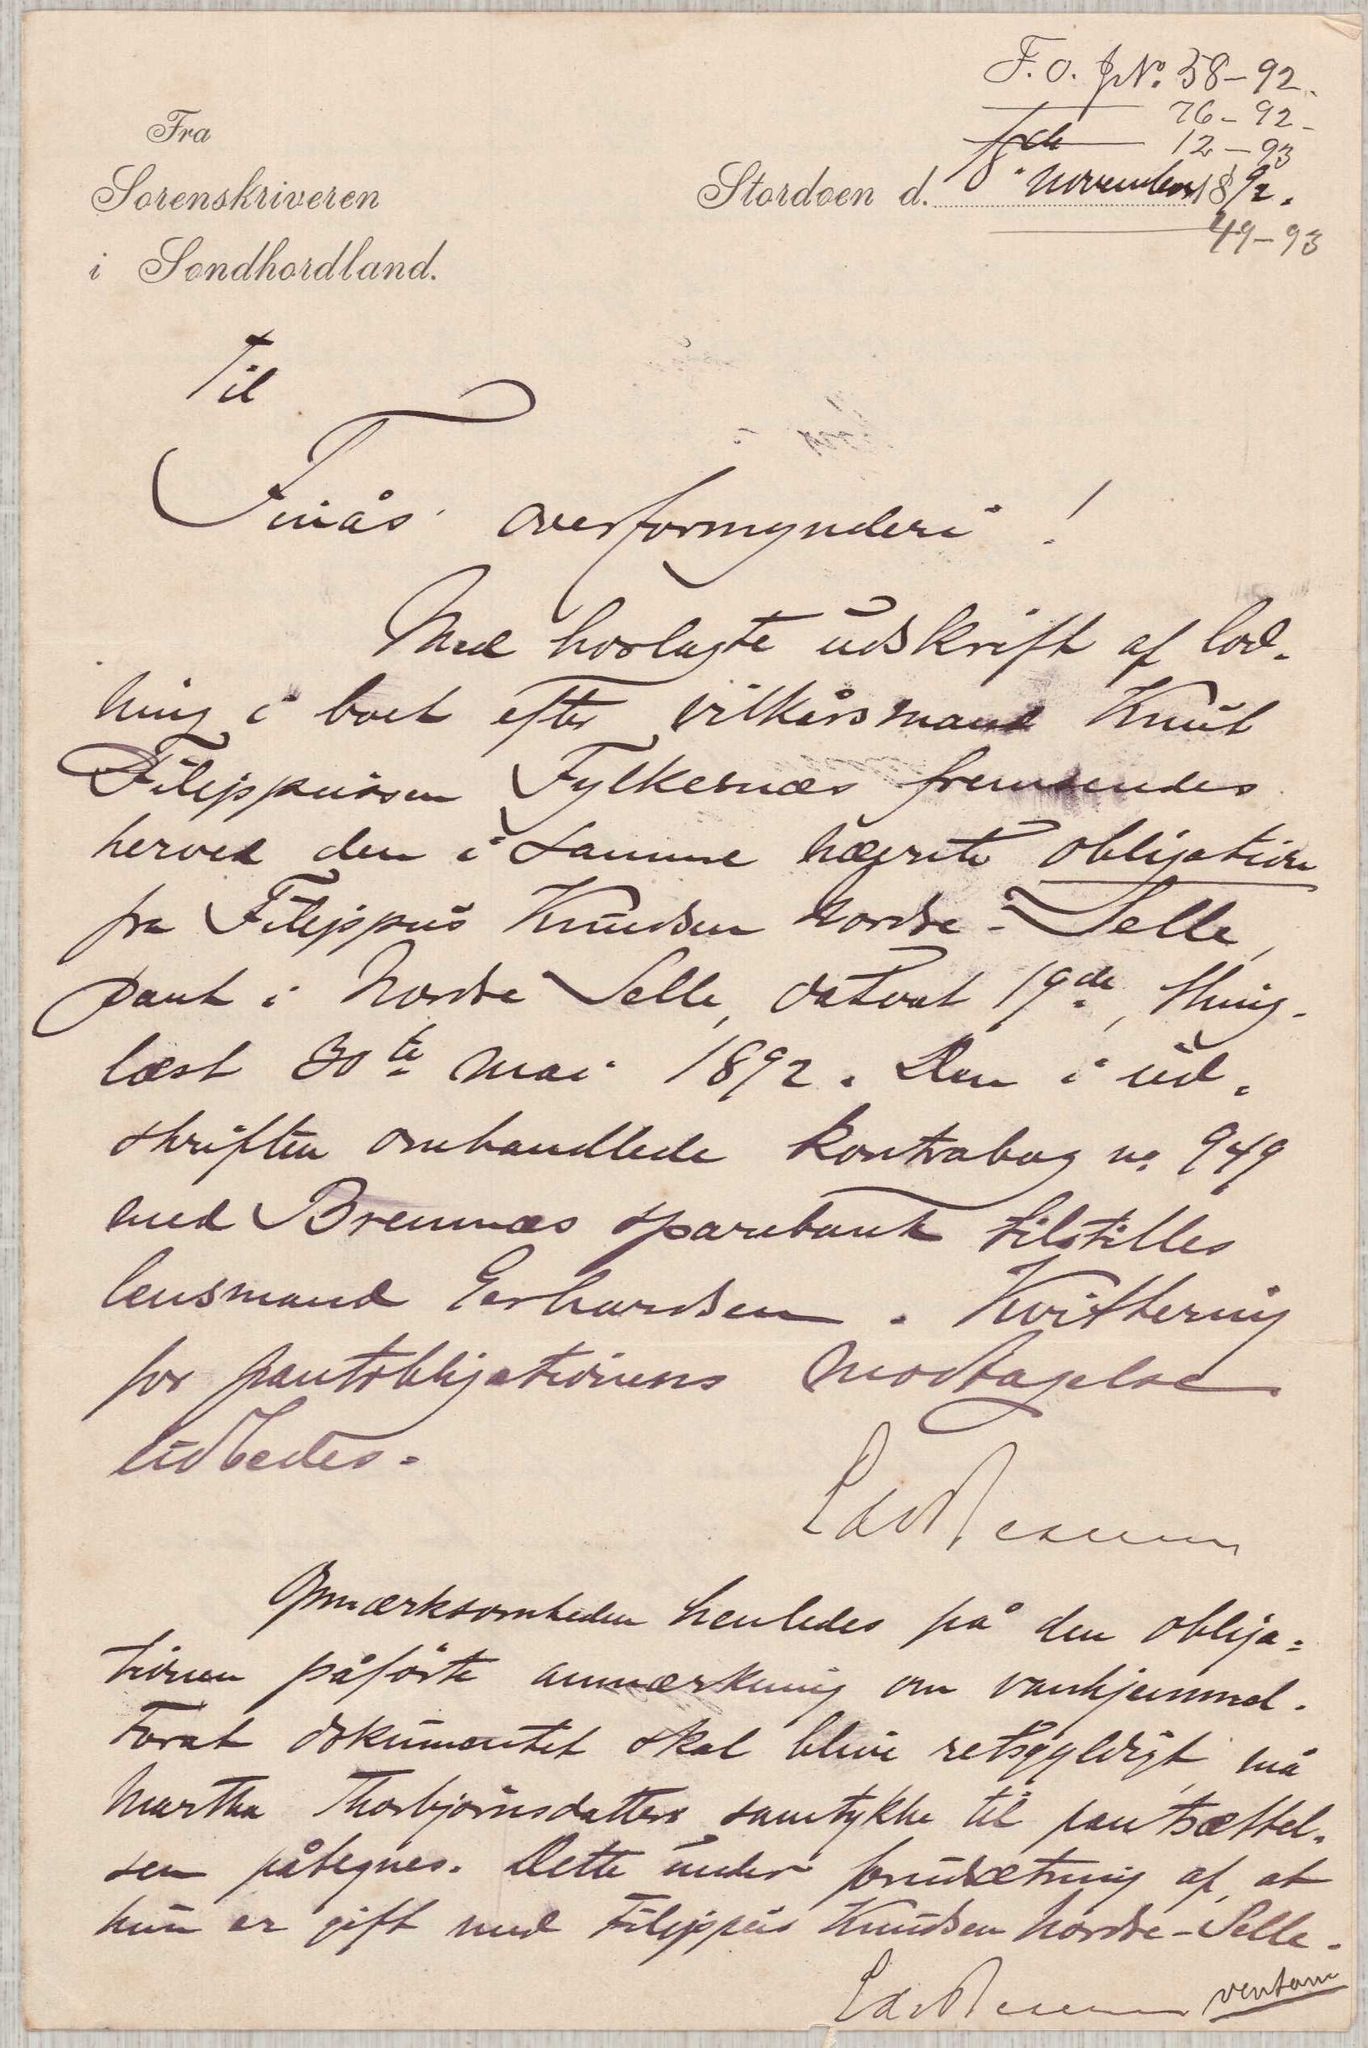 F. O. J№. 58–92.
76–92–
12–93
Fra
Sorenskriveren
i Søndhordland.
Stordøen d. 8. November 1892.
49–93
Til
Finås overformynderi!
Med hoslagte udskrift af lod-
ning i boet efter vilkårsmand Knut
Filippusen Fylkesnæs fremsendes
herved den i samme nævnte obligation
fra Filippus Knudsen Nordre-Selle,
pant i Nordre Selle, dateret 19de, thing-
læst 30te Mai 1892. Den i ud-
skriften omhandlede kontrabog no 949
med Bremnæs sparebank tilstilles
lensmand Gerhardsen. Kvittering
for pantobligationens modtagelse
udbedes.
Opmærksomheden henledes på den obliga-
tionen påførte anmærkning om vanhjemmel.
Forat dokumentet skal blive retsgyldigt må
Martha Thorbjørnsdatters samtykke til pantsættel-
sen påtegnes. Dette under forudsætning af, at
hun er gift med Filippus Knudsen Nordre-Selle.